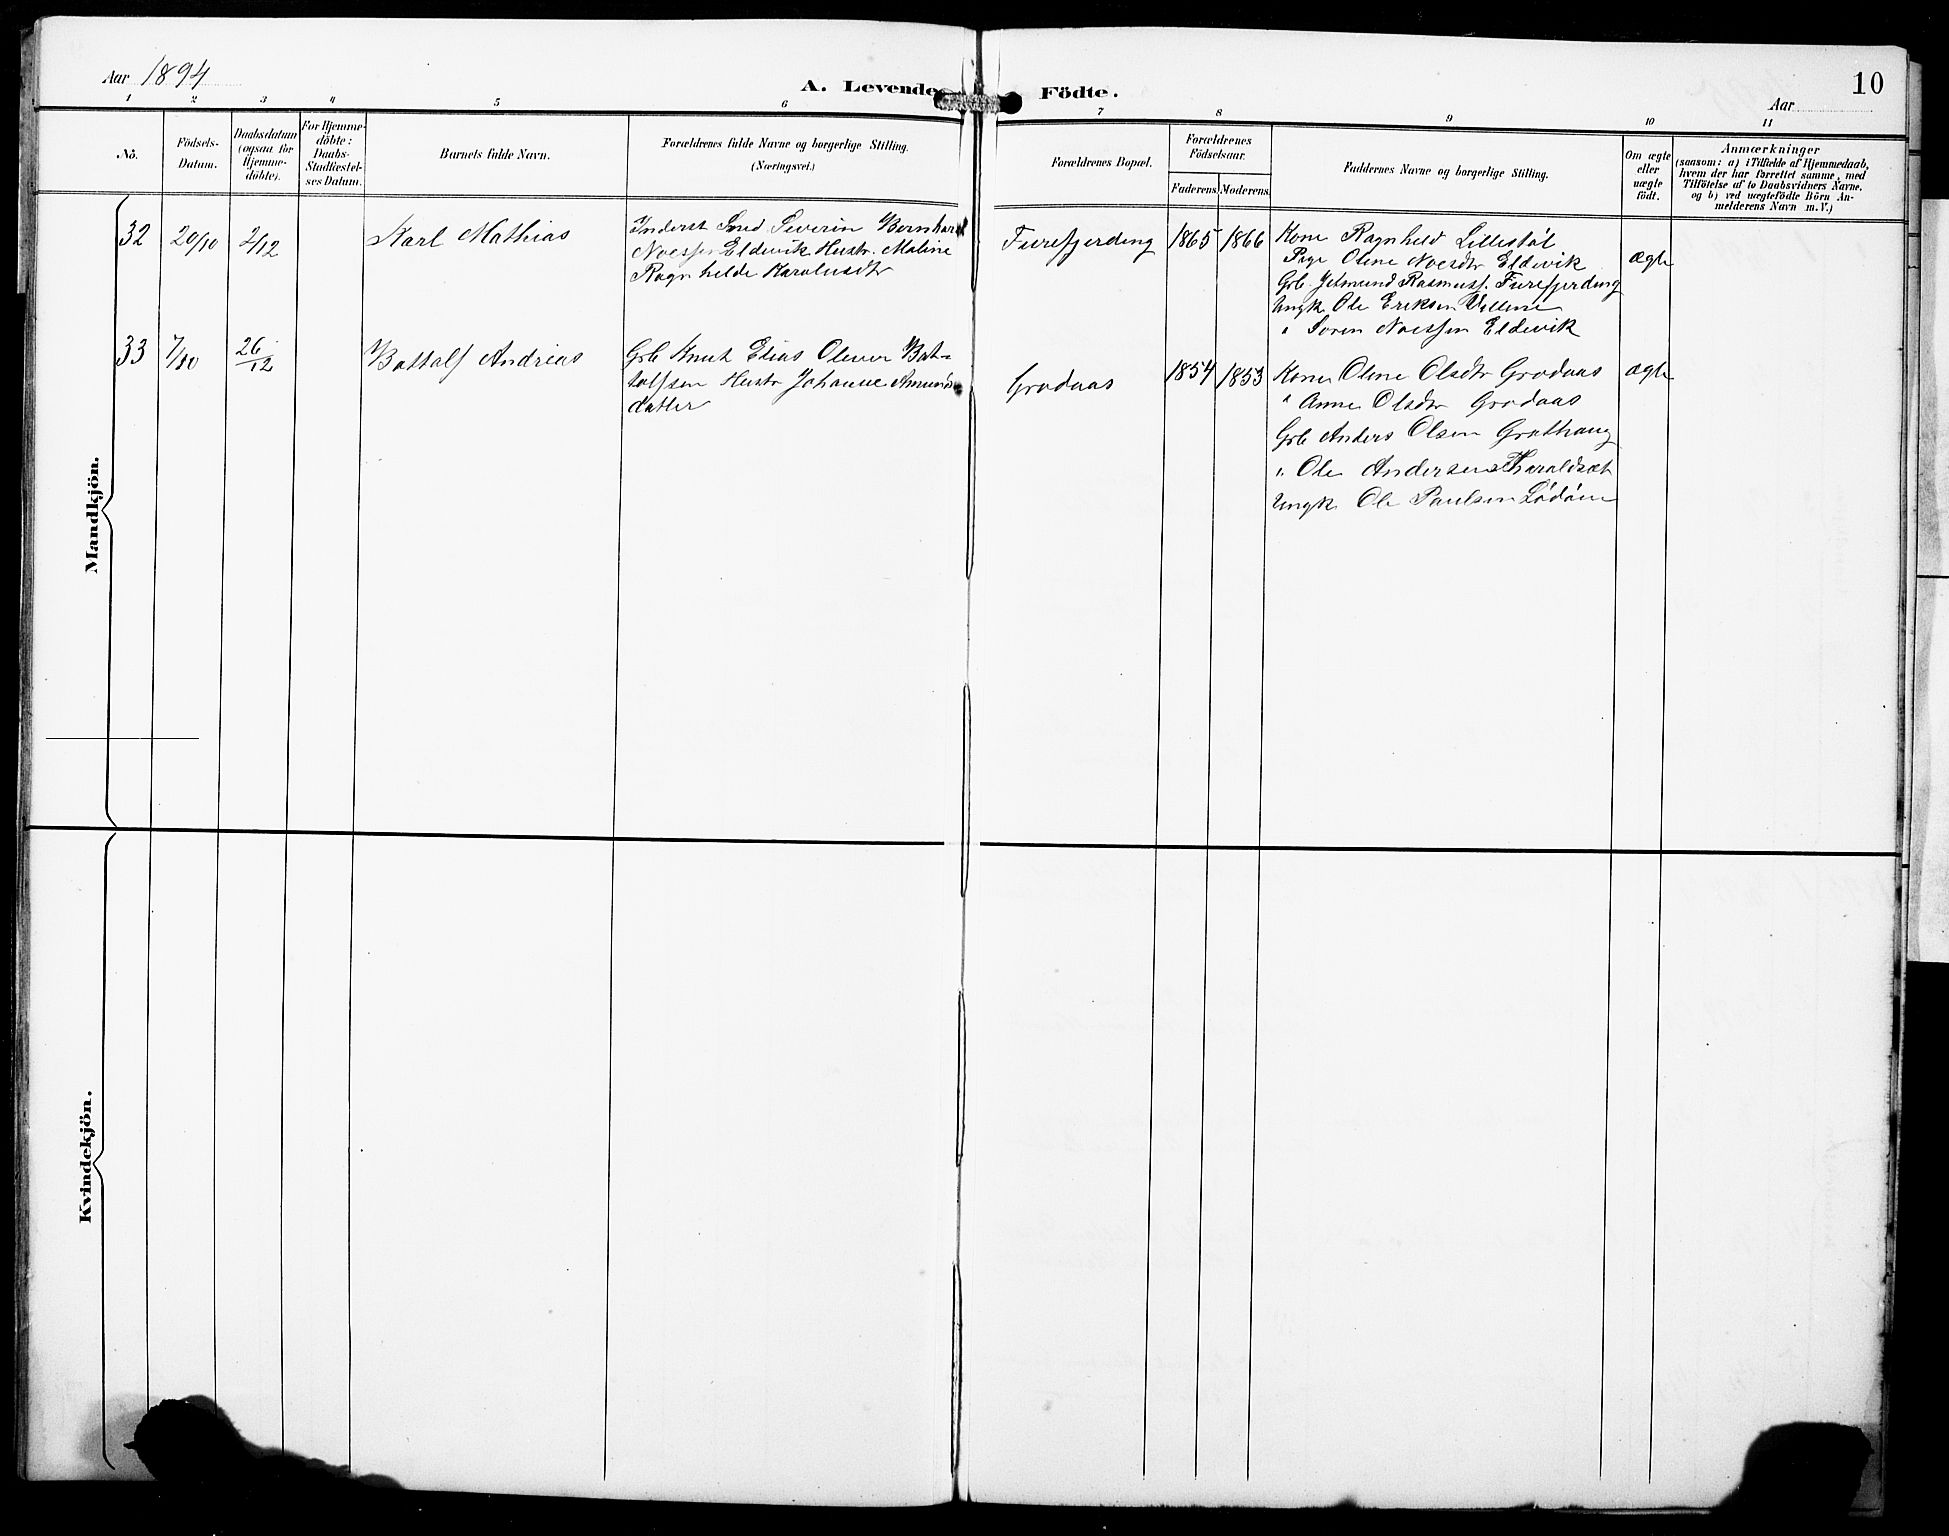 Aar 1894
A. Levende Födte.
10
Aar
1 2 3 4 5 6 7 8 9 10 11
No.
Födsels-
Datum.
Daabsdatum
(ogsaa for
Hjemme-
döbte).
For Hjemme-
döbte:
Daabs-
Stadfæstel-
ses Datum.
Barnets fulde Navn.
Forældrenes fulde Navne og borgerlige Stilling.
(Næringsvei.)
Forældrenes Bopæl.
Forældrenes
Födselsaar.
Faderens. Moderens.
Faddernes Navne og borgerlige Stilling.
Om ægte
eller
uægte
födt.
Anmærkninger
(saasom: a) i Tilfælde af Hjemmedaab,
hvem der har forrettet samme, med
Tilföielse af to Daabsvidners Navne,
og b) ved uægtefödte Börn An-
melderens Navn m. V.)
Mandkjön.
32 20/10 2/12 Karl Mathias
Inderst Smed Severin Bernhard
Noessen Eldevik Hustr. Maline
Ragnhilde Karolusdtr
Furefjerding 1865 1866
Kone Ragnhild Lillestøl
Pige Oline Noesdtr Eldevik
Grb. Jetmund Rasmuss. Furefjerding
Ungk Ole Eriksen
" Soren Noessen Eldevik
ægte
33 7/10 26/12 Bottolf Andreas
Grb Knut Elias Olever Bot-
tolfsen Hustr Johanne Amunds
datter
Grodaas 1854 1853
Kone Oline Olsdtr Grodaas
" Anne Olsdtr Grodaas
Grb Anders Olsen Grothaug
" Ole Andersen Haraldsæt
Ungk Ole Paulsen Lødøen
ægte
Kvindekjön.